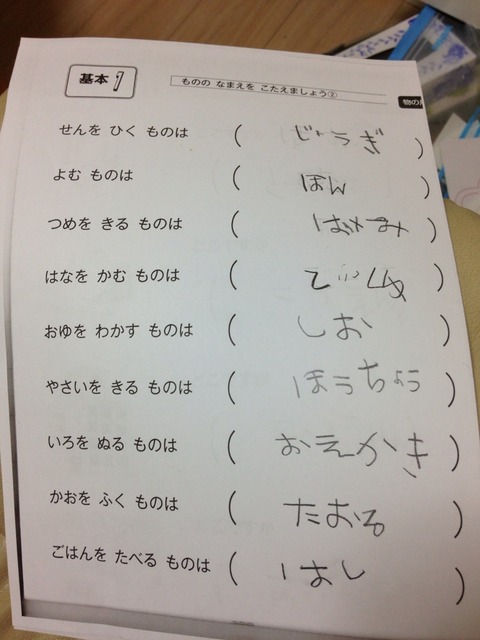 基本 1
ものの なまえを こたえましょう②
物の
せんを ひく ものは ( じょうぎ )
よむ ものは ( ほん )
つめを きる ものは ( はさみ )
はなを かむ ものは ( )
おゆを わかす ものは ( しお )
やさいを きる ものは ( ほうちょう )
いろを ぬる ものは ( おえかき )
かおを ふく ものは ( たおる )
ごはんを たべる ものは ( はし )